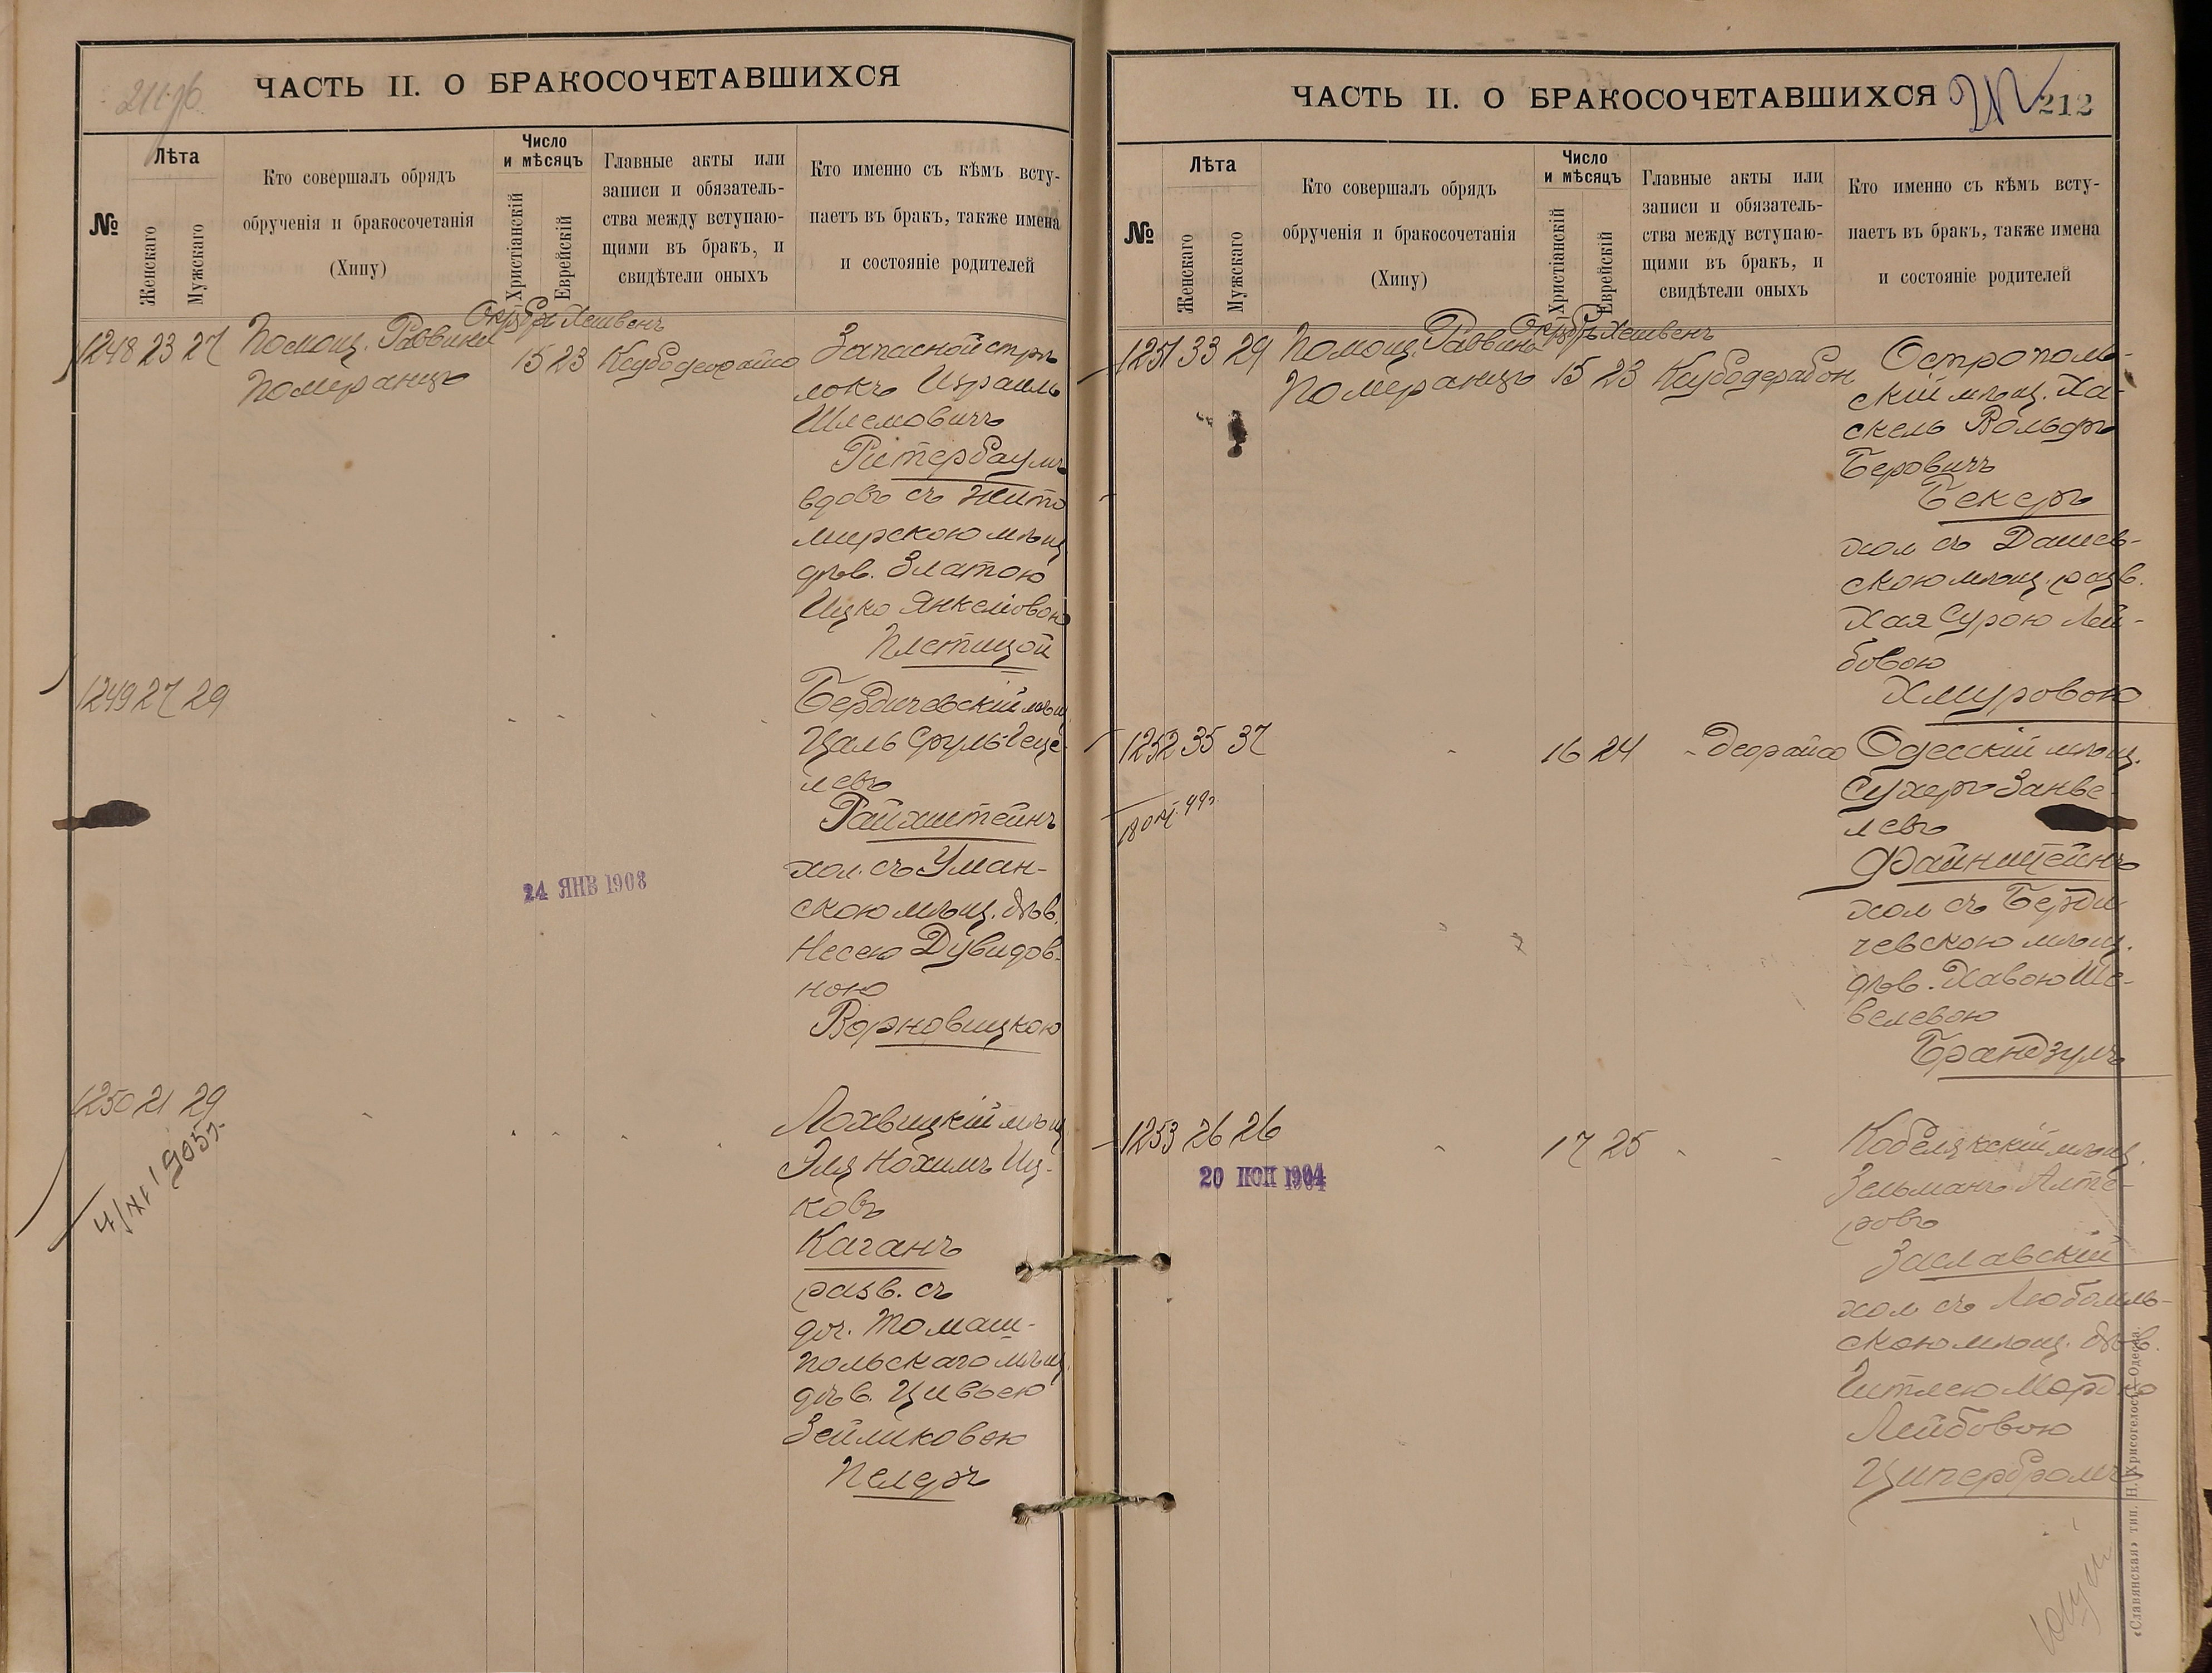 ЧАСТЬ II. О БРАКОСОЧЕТАВШИХСЯ
№
Лѣта
Женскаго
Мужскаго
Кто совершалъ обрядъ
обрученія и бракосочетанія
(Хипу)
Число
и мѣсяцъ
Христіанскій
Еврейскій
Главные акты или
записи и обязатель-
ства между вступаю-
щими въ бракъ, и
свидѣтели оныхъ
Кто именно съ кѣмъ всту-
паетъ въ бракъ, также имена
и состояніе родителей
1248 23 27 Помощ. Раввина
Померанцъ
Хешвенъ
15 23
Запасной стрѣ
локъ Израиль
Шлемовичъ
Ритербаумъ
вдовъ съ Жито
мирскою мѣщ
дѣв. Златою
Ицко Янкелiовою
Плетицой
1249 27 29
Бердичевскій мѣщ
Цаль Сруль Геце-
левъ
Райхштейнъ
хол. съ Уман-
скою мѣщ. дѣв.
Несею Дувидов-
ною
Ворновицкою
24 ЯНВ 1908
1250 21 29
4/XI 1905г.
Лохвицкій мѣщ
Эля Нохимъ Иц-
ковъ
Каганъ
разв. съ
доч. Томаш-
польскаго мѣщ
дѣв. Цивьею
Зейликовою
Пелеръ
ЧАСТЬ II. О БРАКОСОЧЕТАВШИХСЯ
212
212
№
Лѣта
Женскаго
Мужскаго
Кто совершалъ обрядъ
обрученія и бракосочетанія
(Хипу)
Число
и мѣсяцъ
Христіанскій
Еврейскій
Главные акты или
записи и обязатель-
ства между вступаю-
щими въ бракъ, и
свидѣтели оныхъ
Кто именно съ кѣмъ всту-
паетъ въ бракъ, также имена
и состояніе родителей
1251 33 29 Помощ. Раввина
Померанцъ
Хешвенъ
15 23 Кубодерабон
Острополь-
скій мѣщ. Ха-
скель Вольфъ
Беровичъ
Бекеръ
хол съ Дашев-
скою мѣщ. разв.
Хая Сурою Лей-
бовою
Хмуровою
1252 35 37
16 24
Деорайсо
Одесскій мѣщ.
Сухеръ Занве-
левъ
Файнштейнъ
хол съ Берди
чевскою мѣщ.
дѣв. Хавою Ше-
велевою
Брандзумъ
1253 26 26
20 1904
17 25
Кобелякскій мѣщ.
Зельманъ Алте-
ровъ
Заславскій
хол съ Любомль-
скою мѣщ. дѣв.
Гитлею Мордко
Лейбовою
Ципербромъ
«Славянская» тип. Н. Хрисогелосъ, Одесса.